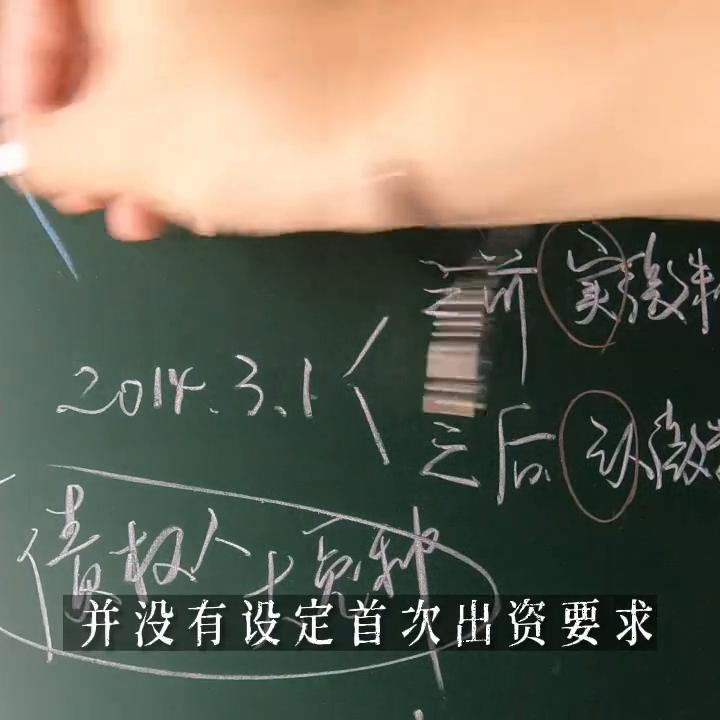 之前 实缴制
2014.3.1
之后 认缴制
债权人 大冤种
并没有设定首次出资要求